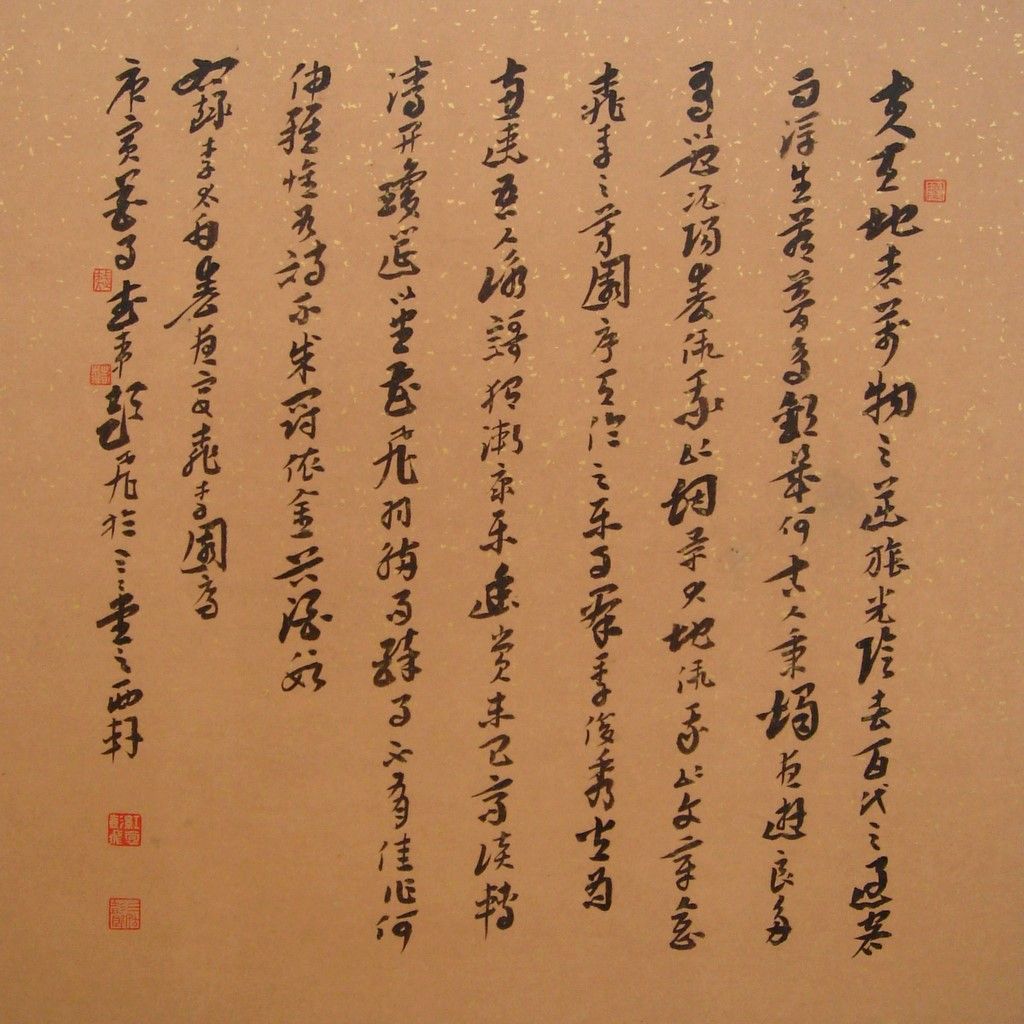 夫天地者萬物之逆旅光陰者百代之過客
而浮生若夢為歡幾何古人秉燭夜遊良
以況陽春假我以烟景大地假我以文章會
桃李之芳園序天倫之樂事群季俊秀皆為
惠連吾人詠歌獨慚康樂幽賞未已高談轉
清開瓊筵以坐花飛羽觴而醉月不有佳作何
伸雅懷如詩不成罰依金谷酒數
錄李太白春夜宴桃李園序
庚寅月彭飛於三三堂之西軒